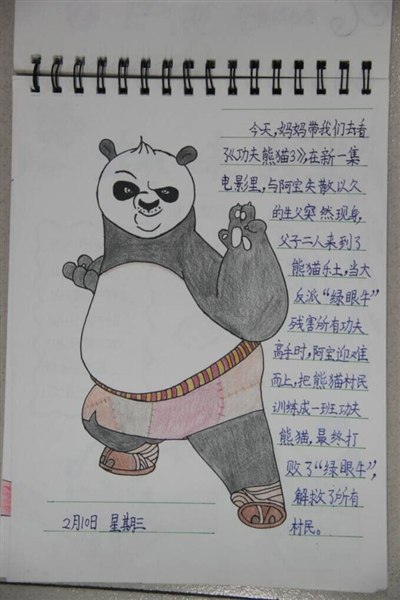 今天,妈妈带我们去看
了《功夫熊猫3》,在新一集
电影里,与阿宝失散以久
的生父突然现身,
父子二人来到了
熊猫乐土,当大
反派“绿眼牛”
残害所有功夫
高手时,阿宝迎难
而上,把熊猫村民
训练成一班功夫
熊猫,最终打
败了“绿眼牛”,
解救了所有
村民。
2月10日 星期三